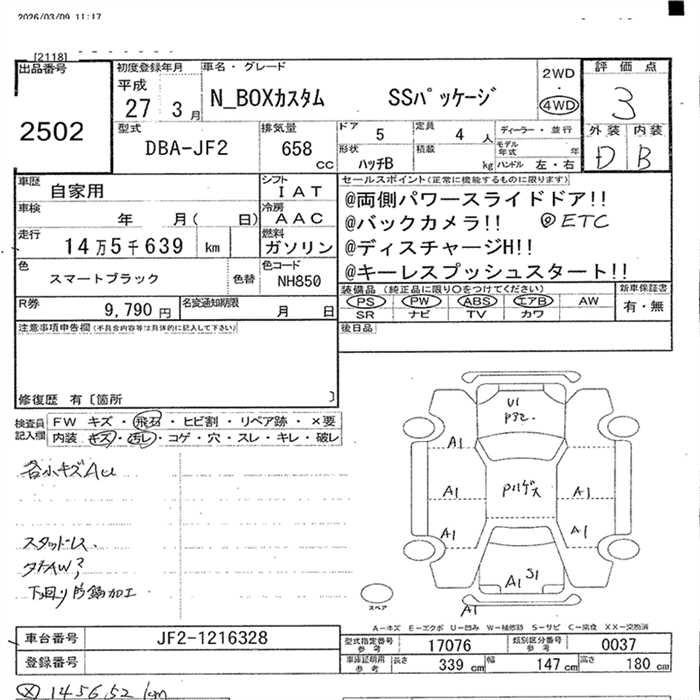 2026/03/09 11:17
[2118]
出品番号
2502
初度登録年月
平成
27 3月
車名・グレード
N_BOXカスタム SSパッケージ
2WD
・
4WD
評価点
3
外装 内装
D B
型式
DBA-JF2
排気量
658
cc
ドア 5
定員 4 人
形状
ハッチB
積載
kg
ディーラー・並行
モデル
年式 年
ハンドル 左・右
車歴
自家用
車検
年 月( 日)
走行
14万5千639 km
色
スマートブラック
色替
シフト
IAT
冷房
AAC
燃料
ガソリン
色コード
NH850
R券
9,790 円
名変通知期限
月 日
セールスポイント(正常に機能するものに限ります)
@両側パワースライドドア!!
@バックカメラ!! @ETC
@ディスチャージH!!
@キーレスプッシュスタート!!
装備品(純正品に限り○をつけてください)
PS PW ABS エアB AW
SR ナビ TV カワ
新車保証書
有・無
後日品
注意事項申告欄(不具合内容等は具体的に記入して下さい)
修復歴 有〔箇所 〕
検査員
記入欄
FW キズ・飛石・ヒビ割・リペア跡・×要
内装 キズ・汚レ・コゲ・穴・スレ・キレ・破レ
各小キズAU
スタッドレス、
タイAW?
下回り防錆加工
U1
A1
A1
A1
A1
A1
A1
S1
A1
スペア
A1
A-キズ E-エクボ U-凹み W-補修跡 S-サビ C-腐食 XX-交換済
車台番号
JF2-1216328
登録番号
型式指定番号
参考
17076
類別区分番号
参考
0037
車庫証明用
参考
長さ 339 cm
幅 147 cm
高さ 180 cm